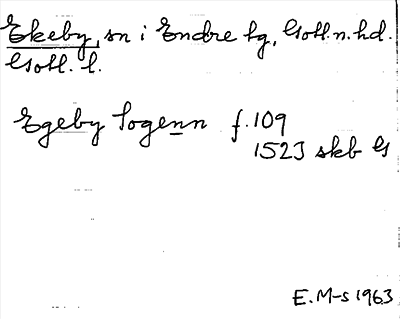 Ekeby, sn i Endre tg, Gotl.n.hd.
Gotl. l.
Egeby Sogenn f.109
1523 skb G
E.M-s 1963